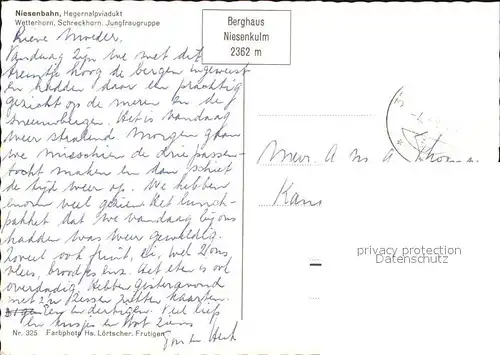 Niesenbahn, Hegernalpviadukt
Wetterhorn, Schreckhorn, Jungfraugruppe
Berghaus
Niesenkulm
2362 m
Lieve Moeder.
Vandaag zijn we met dit
treintje hoog de bergen ingeweest
en hadden daar een prachtig
gezicht op de meren en de
sneeuwbergen. Het is vandaag
weer stralend. Morgen gaan
we misschien de driepassen-
tocht maken en dan schiet
de tijd weer op. We hebben
enorm veel gezien. Het lunch-
pakket dat we vandaag bij ons
hadden was weer geweldig,
zoveel ook fruit, ei, wel 2 ons
vlees, broodjes enz. Het eten is ook
overdadig. Hebben gisteravond
met z'n zessen zitten kaarten.
en dertigen. Veel liefs
en kusjes en
Mevr. A M A
privacy protection
Datenschutz
Nr. 325 Farbphoto Hs. Lörtscher, Frutigen